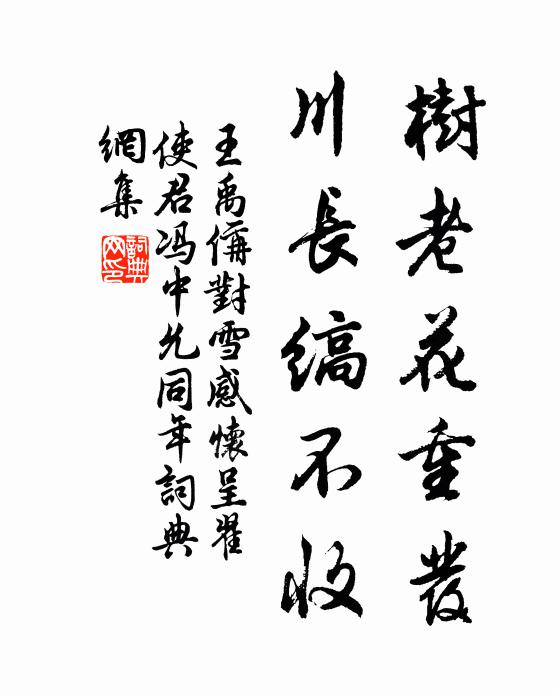 樹老花重發
川長縞不收
王禹偁對雪感懷呈翟
使君冯中允同年詞典
網集
詞典
网印